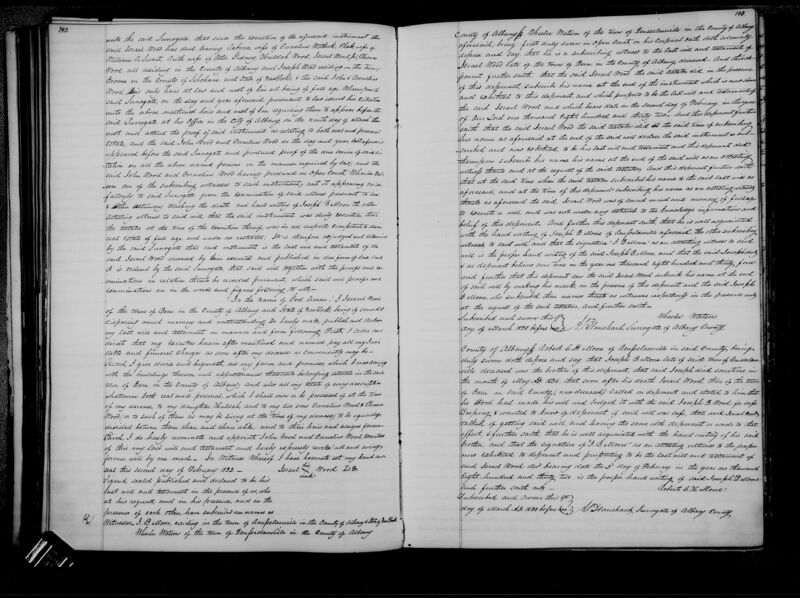 192
unto the said Surrogate, that since the execution of the aforesaid instrument the
said Israel Wood has died leaving wife of Cornelius wife of
William A. Ruth wife of Peter Huldah Wood, Israel Wood Jr, Chana
Wood all residing in the County of Albany and Joseph Wood residing in the town
Broome in the County of Schoharie and State of New York & the said John & Cornelius
Wood his only heirs at law and next of kin all being of full age. Whereupon
said Surrogate on the day and year aforesaid pursuant to law issued his Citation
unto the above mentioned heirs and next of kin requiring them to appear before the
said Surrogate at his Office in the City of Albany on the ninth day of March
next and attend the proof of said instrument as relating to both real and personal
Estate, and the said John Wood and Cornelius Wood on the day and year last aforesaid
appeared before the said Surrogate and produced proof of the due service of said Ci-
tation on all the above named persons in the manner required by law, and the
said John Wood and Cornelius Wood having produced in Open Court, Wheeler Wat-
son one of the subscribing witnesses to said instrument, and it appearing satis-
factorily to said Surrogate from the examination of said witness pursuant to law
& other testimony touching the death and hand writing of Joseph B. Moore the other
attesting witness to said will, that the said instrument was duly executed, that
the testator at the time of the execution thereof was in all respects competent to devise
real Estate of full age and under no restraint. It is therefore adjudged and determined
by the said Surrogate that said instrument is the last will and testament of the
said Israel Wood deceased by him executed and published in due form of law. And
it is ordered by the said Surrogate, that said will together with the proofs and ex-
aminations in relation thereto be recorded pursuant, which said will proofs and
examinations are in the words and figures following, to wit:
"In the Name of God Amen. I Israel Wood
of the town of Bern in the County of Albany and State of New York, being of sound &
disposing mind memory and understanding do hereby make, publish and declare
my last will and testament, in manner and form following. First. I order and
direct that my Executors herein after mentioned and named pay all my just
debts and funeral charges as soon after my decease as conveniently may be.
Second. I give devise and bequeath, all my farm and premises which I now occupy
with the buildings thereon and appurtenances thereunto belonging situated in the said
town of Bern in the County of Albany, and also all my estate of every description
whatsoever both real and personal which I shall own or be possessed of at the time
of my decease, to my daughter Huldah, and to my two sons Cornelius Wood & Chana
Wood, or to such of them as may be living at the time of my decease to be equally
divided between them share and share alike, and to their heirs and assigns forever.
Third. I do hereby nominate and appoint John Wood and Cornelius Wood Executors
of this my last will and testament and hereby expressly revoke all and every
former will by me made. In Witness Whereof I have hereunto set my hand and
seal this second day of February 1832. Israel his x mark Wood L.S.
Signed sealed published and declared to be his
last will and testament in the presence of us, who
at his request and in his presence, and in the
presence of each other, have subscribed our names as
Witnesses, J. B. Moore, residing in the town of Rensselaerville in the County of Albany & State of New York
Wheeler Watson of the town of Rensselaerville in the County of Albany
193
County of Albany ss. Wheeler Watson of the town of Rensselaerville in the County of Albany
aforesaid, being first duly sworn in open Court on his corporal oath doth solemnly
depose and say, that he is a subscribing witness to the last will and testament of
Israel Wood late of the town of Bern in the County of Albany, deceased. And this de-
ponent further saith that the said Israel Wood, the said testator did, in the presence
of this deponent, subscribe his name at the end of the instrument which is now shown
and exhibited to this deponent and which purports to be the last will and testament of
the said Israel Wood and which bears date on the second day of February in the year
of Our Lord one thousand Eight hundred and thirty two. And this deponent further
saith that the said Israel Wood the said testator did at the said time of subscribing
his name as aforesaid at the end of the said will declare the said instrument so sub-
scribed and now exhibited, to be his last will and testament and this deponent did
thereupon subscribe his name at the end of the said will as an attesting
witness thereto and at the request of the said testator. And this deponent further saith
that at the said time when the said testator subscribed his name to the said last will as
aforesaid, and at the time of this deponent subscribing his name as an attesting witness
thereto as aforesaid the said Israel Wood was of sound mind and memory, of full age
to execute a will and was not under any restraint to the knowledge information and
belief of this deponent. And further this deponent saith, that he is well acquainted
with the hand writing of Joseph B. Moore of Rensselaerville aforesaid, the other subscribing
witness, to said will and that the signature "J. B. Moore" as an attesting witness to said
will is the proper hand writing of the said Joseph B. Moore and that the said Joseph died
& as deponent believes some time in the year one thousand Eight hundred and thirty four
and further that this deponent saw the said Israel Wood subscribe his name at the end
of said will by making his mark in the presence of this deponent and the said Joseph
B. Moore, who subscribed their names thereto as witnesses respectively in the presence
at the request of the said testator, and further saith.
Subscribed and sworn this 9th
day of March 1838 before me Wheeler Watson
A. Blanchard, Surrogate of Albany County
County of Albany ss. Robert C. H. Moore of Rensselaerville in said County, being
duly sworn doth depose and say that Joseph B. Moore late of said town of Rensselaer-
ville deceased was the brother of this deponent, that said Joseph died sometime in
the month of May AD 1834, that soon after his death Israel Wood then of the town
of Bern in said County, now deceased, called on deponent and stated to him that
he Wood had made his will and lodged it with the said Joseph B. Moore for safe
keeping, & wanted to know of deponent if said will was safe, that said Israel Wood
talked of getting said will and leaving the same with deponent or words to that
effect & further saith, that he is well acquainted with the hand writing of his said
brother, and that the signature "J. B. Moore" as an attesting witness to the paper
now exhibited to deponent and purporting to be the last will and testament of
said Israel Wood, dec'd bearing date the 2d day of February in the year one thousand
Eight hundred and thirty two is the proper hand writing of said Joseph B. Moore
And further saith not.
Robert C. H. Moore
Subscribed and sworn this 9th
day of March AD 1838 before me A. Blanchard, Surrogate of Albany County